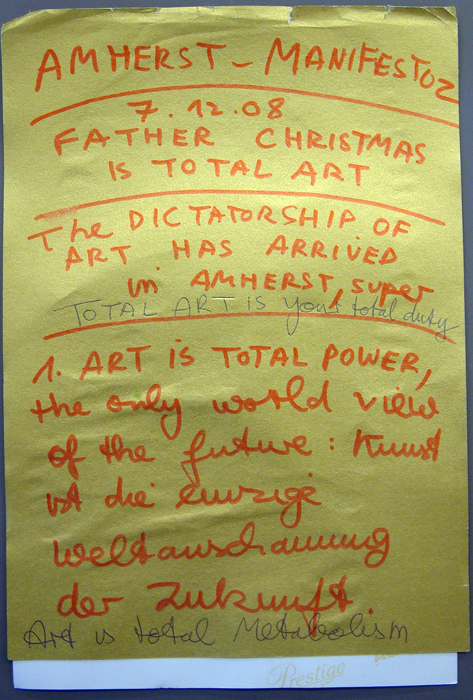 AMHERST - MANIFESTOZ
7.12.08
FATHER CHRISTMAS
IS TOTAL ART
The DICTATORSHIP OF
ART HAS ARRIVED
in AMHERST, super
TOTAL ART IS your total duty
1. ART IS TOTAL POWER,
the only world view
of the future: Kunst
ist die einzige
Weltanschauung
der Zukunft
Art is total Metabolism
Prestige